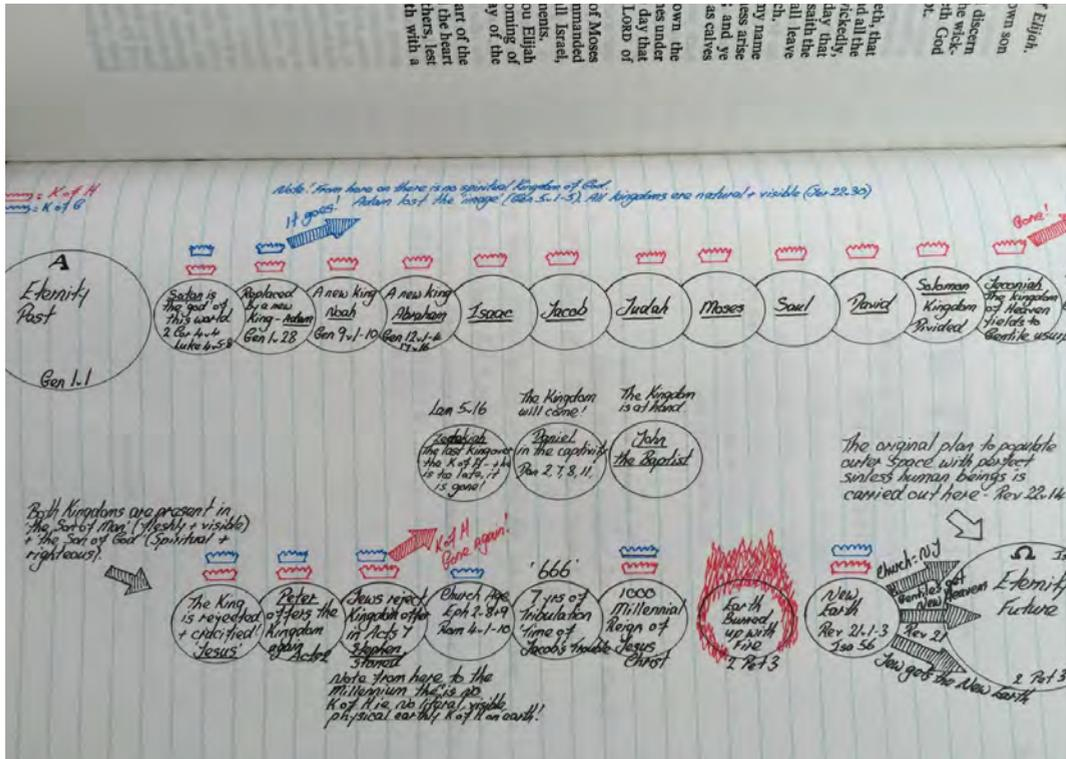 r Elijah,
own son
discern
e wick-
eth God
ot.
eth, that
d all the
ickedly,
day that
saith the
all leave
ch.
my name
ess arise
; and ye
as calves
own the
nes under
day that
LORD of
of Moses
mmanded
ll Israel,
ments.
ou Elijah
oming of
ay of the
art of the
the heart
thers, lest
th with a
= K of H
= K of G
Note! From here on there is no spiritual Kingdom of God.
Adam lost the 'image' (Gen 5v.1-5). All kingdoms are natural + visible (Jer 22.30)
It goes!
Gone!
A
Eternity
Past
Gen 1v.1
Satan is
the 'god' of
this world
2 Cor 4v4
Luke 4v5-8
Replaced
by a new
King - Adam
Gen 1v.28
A new King
Noah
Gen 9v.1-10
A new King
Abraham
Gen 12v.1-4
17v16
Isaac
Jacob
Judah
Moses
Saul
David
Solomon
Kingdom
Divided
Jeconiah
The kingdom
of Heaven
yields to
Gentile usurp
Lam 5v16
Zedekiah
the last King over
the K of H -
is too late, it
is gone!
The Kingdom
will come!
Daniel
in the captivity
Dan 2,7,8,11,
The Kingdom
is at hand.
John
the Baptist
The original plan to populate
outer space with perfect
sinless human beings is
carried out here - Rev 22v.14
Both Kingdoms are present in
'the Son of Man' (fleshly + visible)
+ 'the Son of God' (Spiritual +
righteous).
The King
is rejected
+ crucified!
'Jesus'
Peter
offers the
Kingdom
again
Acts 2
Jews reject
Kingdom offer
in Acts 7
Stephen
stoned
K of H
Gone Again!
Note from here to the
Millennium the is no
K of H ie. No literal, visible,
physical earthly K of H on earth!
Church Age
Eph 2v8+9
Rom 4v.1-10
'666'
7 yrs of
Tribulation
Time of
Jacob's Trouble
1000
Millennial
Reign of
Jesus
Christ
Earth
Burned
up with
Fire
2 Pet 3
New
Earth
Rev 21v.1-3
Isa 56
Church = NJ
Gentiles get
New Heaven
Rev 21
Jew gets the New Earth
Ω
Eternity
Future
2 Pet 3